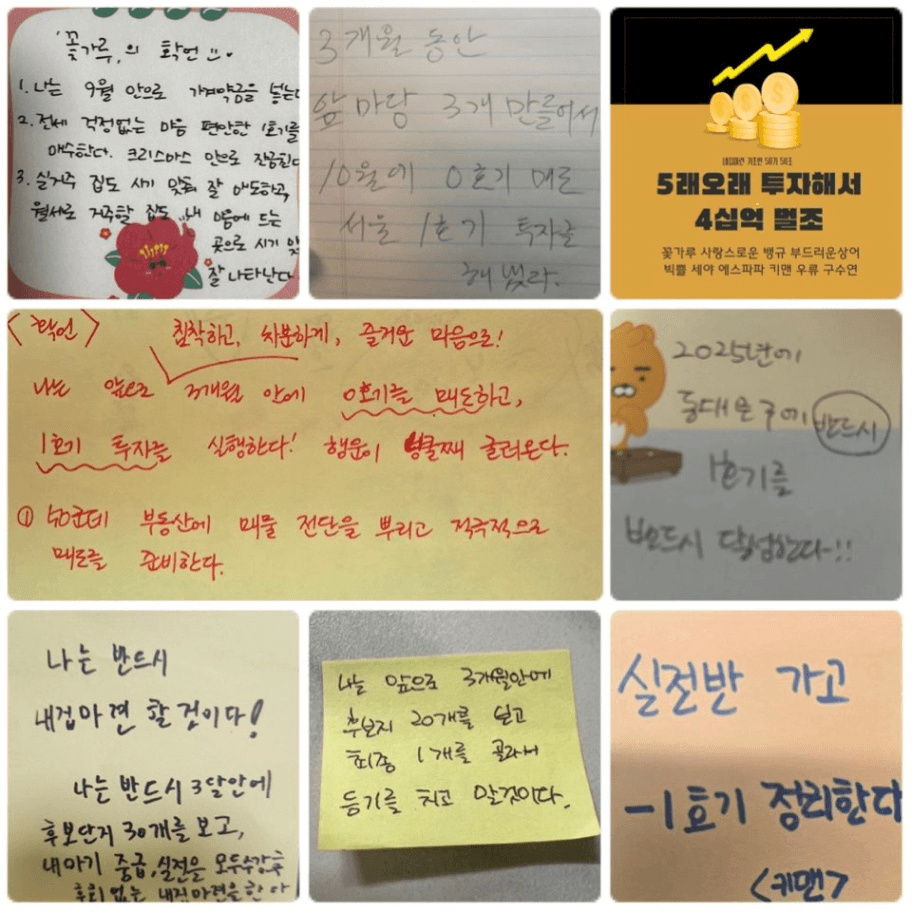 '꽃가루'의 확언
1. 나는 9월 안으로 가계약금을 넣는다
2. 전세 걱정없는 마음 편안한 1호기를
매수한다. 크리스마스 안으로 잔금친다
3. 실거주 집도 시기 맞춰 잘 매도하고,
월세로 거주할 집도 내 마음에 드는
곳으로 시기 맞
잘 나타난다
3개월 동안
앞마당 3개 만들어서
10월에 0호기 매도
서울 1호기 투자를
해냈다.
내집마련 기초반 58기 58조
5래오래 투자해서
4십억 벌조
꽃가루 사랑스로운 뱅규 부드러운상어
빅쁠 세야 에스파파 키맨 우류 구수연
<확언> 침착하고, 차분하게, 즐거운 마음으로!
나는 앞으로 3개월 안에 0호기를 매도하고,
1호기 투자를 실행한다! 행운이 넝쿨째 굴러온다.
① 50군데 부동산에 매물 전단을 뿌리고 적극적으로
매도를 준비한다.
2025년에
동대문구에 반드시
1호기를
반드시 달성한다!!
나는 반드시
내집마련 할것이다!
나는 반드시 3달안에
후보단지 30개를 보고,
내마기 중급, 실전을 모두수강후
후회없는 내집마련을한다
나는 앞으로 3개월안에
후보지 20개를 보고
최종 1개를 골라서
등기를 치고 말것이다.
실전반 가고
-1호기 정리한다
<키맨>